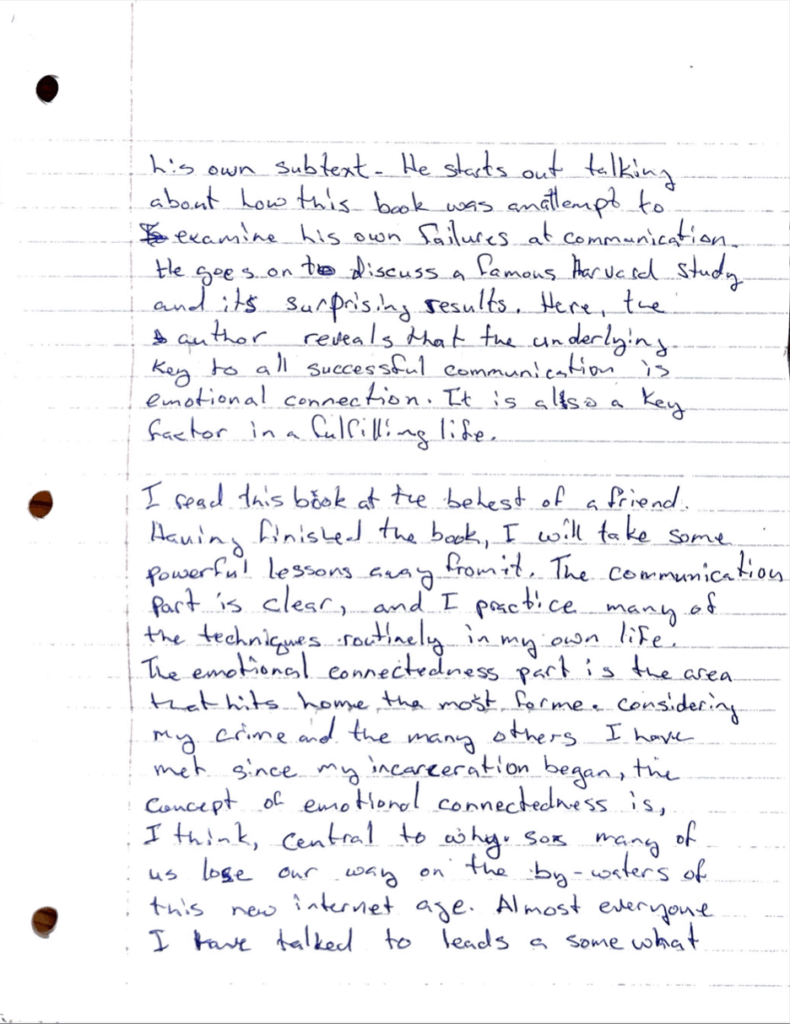 his own subtext. He starts out talking
about how this book was an attempt to
examine his own failures at communication.
He goes on to discuss a famous Harvard study
and its surprising results. Here, the
author reveals that the underlying
key to all successful communication is
emotional connection. It is also a key
factor in a fulfilling life.
I read this book at the behest of a friend.
Having finished the book, I will take some
powerful lessons away from it. The communication
part is clear, and I practice many of
the techniques routinely in my own life.
The emotional connectedness part is the area
that hits home the most for me. considering
my crime and the many others I have
met since my incarceration began, the
concept of emotional connectedness is,
I think, central to why so many of
us lose our way on the by-waters of
this new internet age. Almost everyone
I have talked to leads a some what